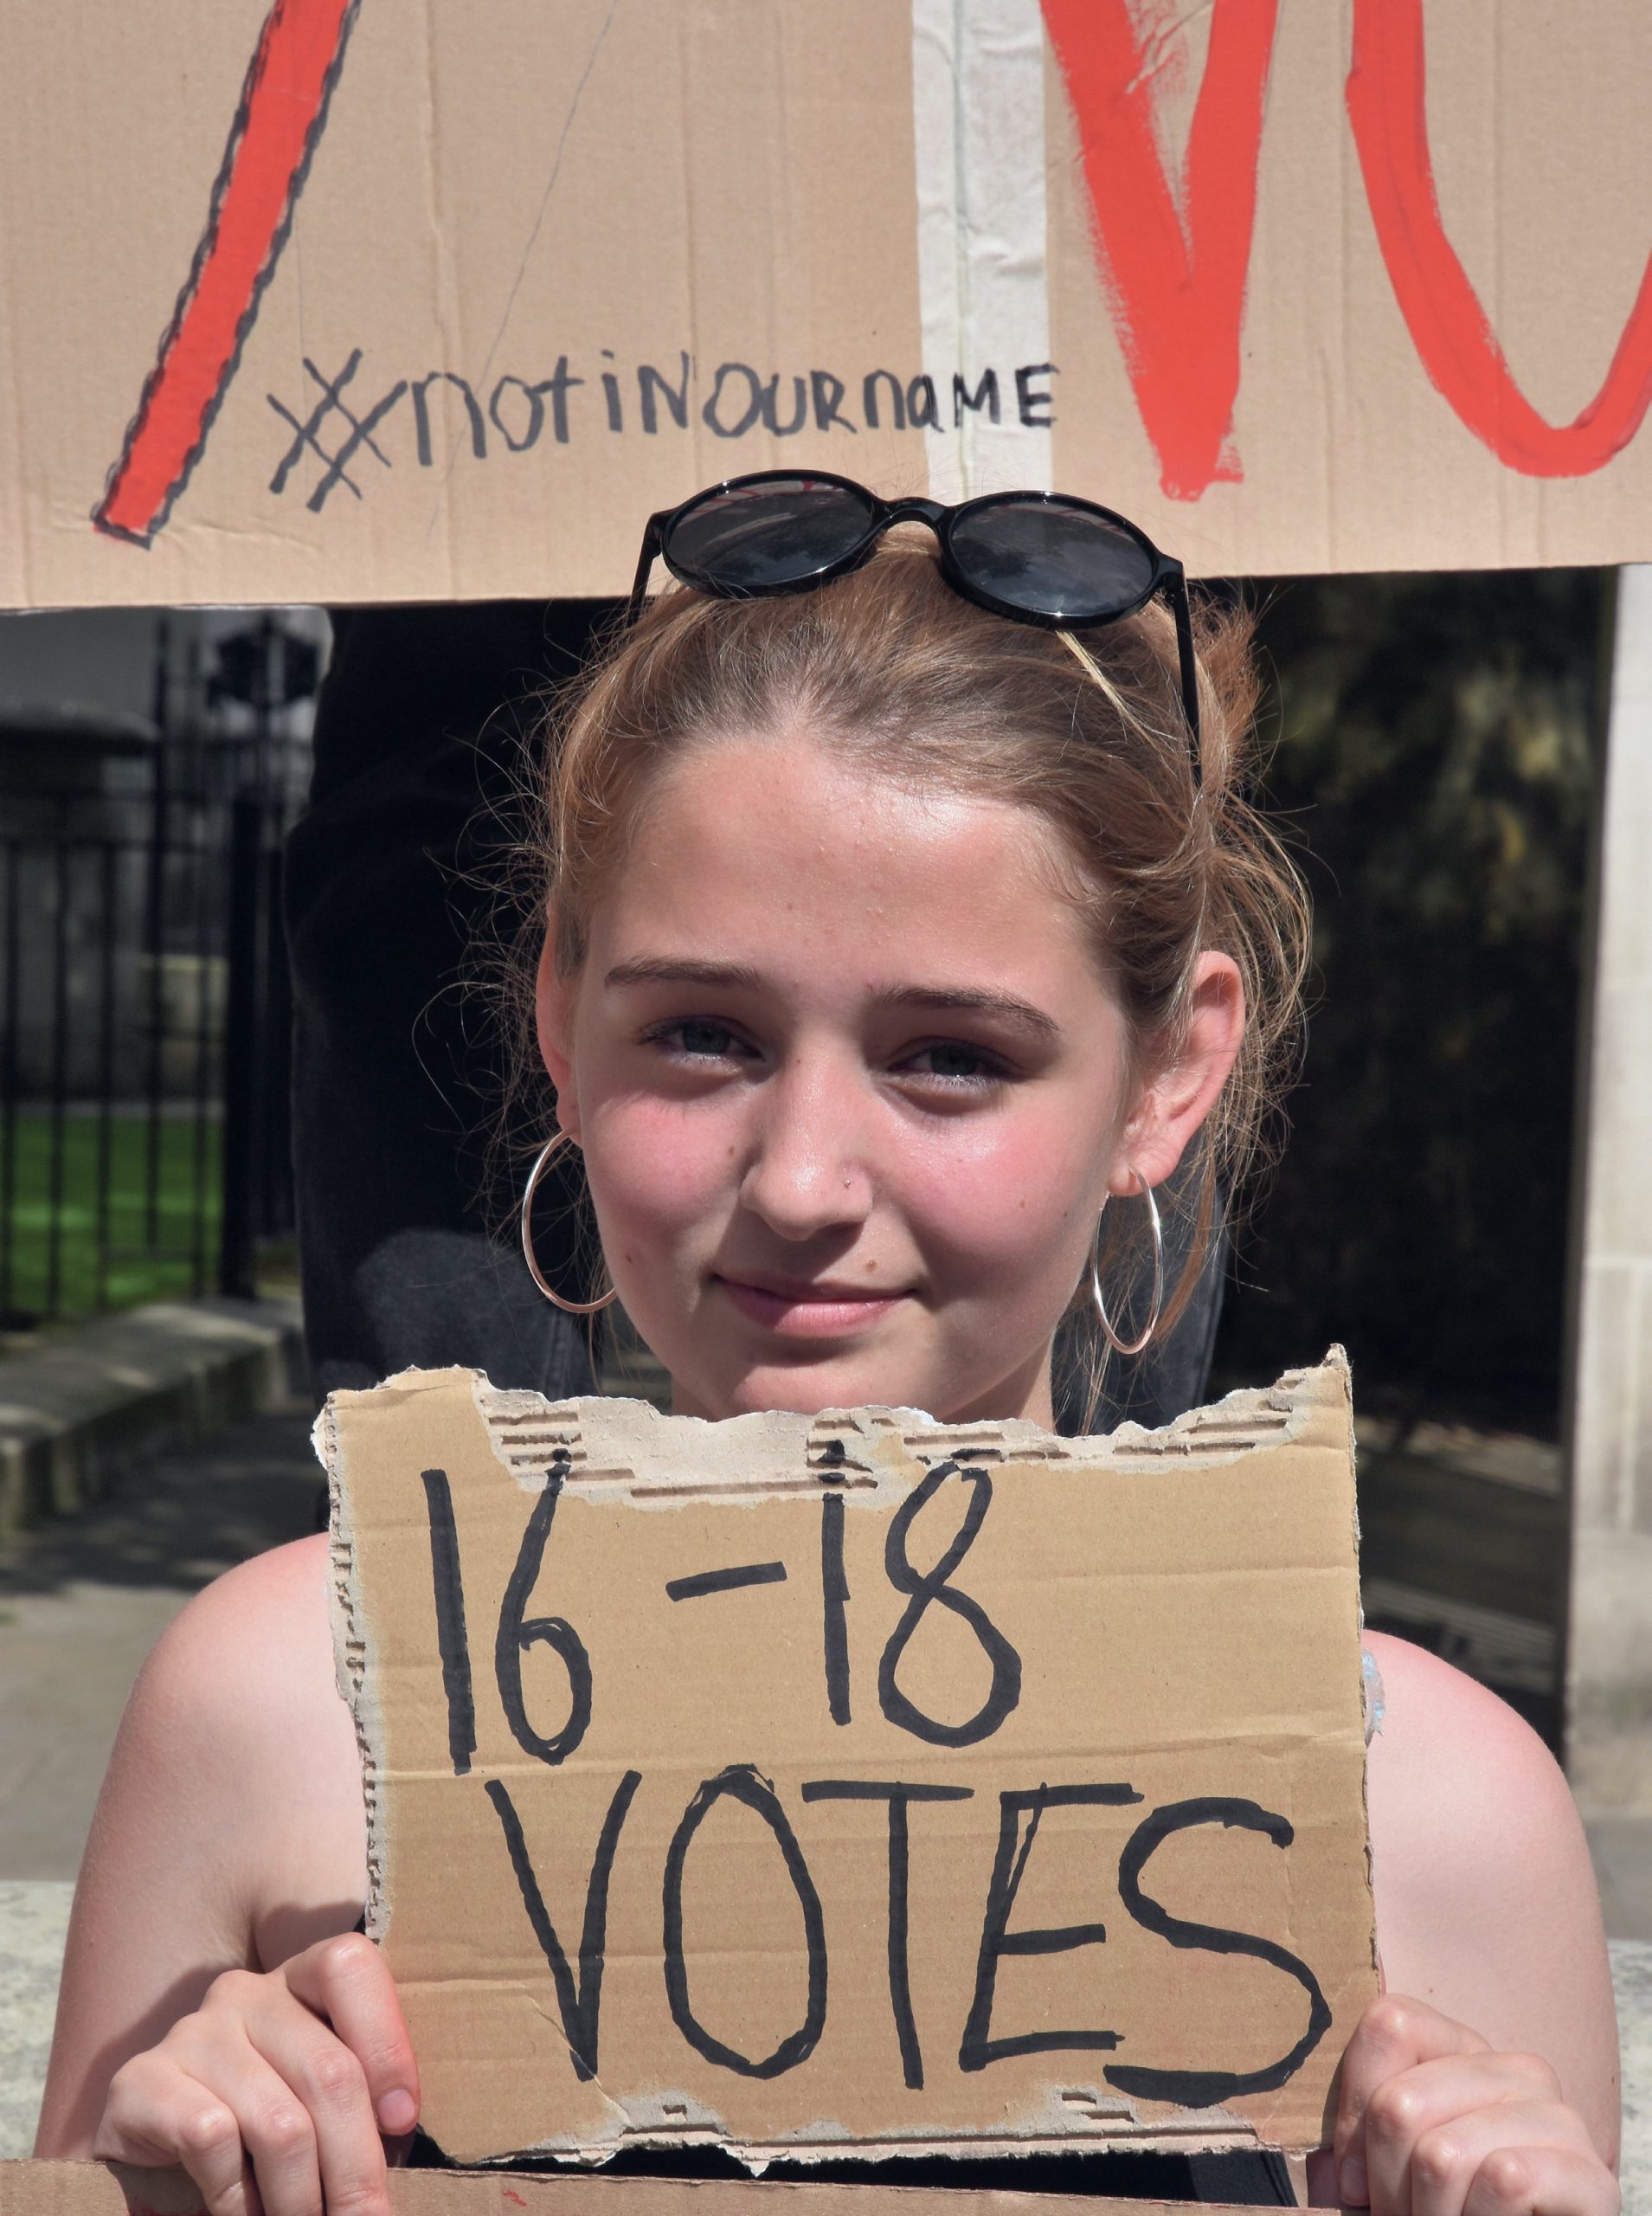 #notiNOURnaME
16-18
VOTES